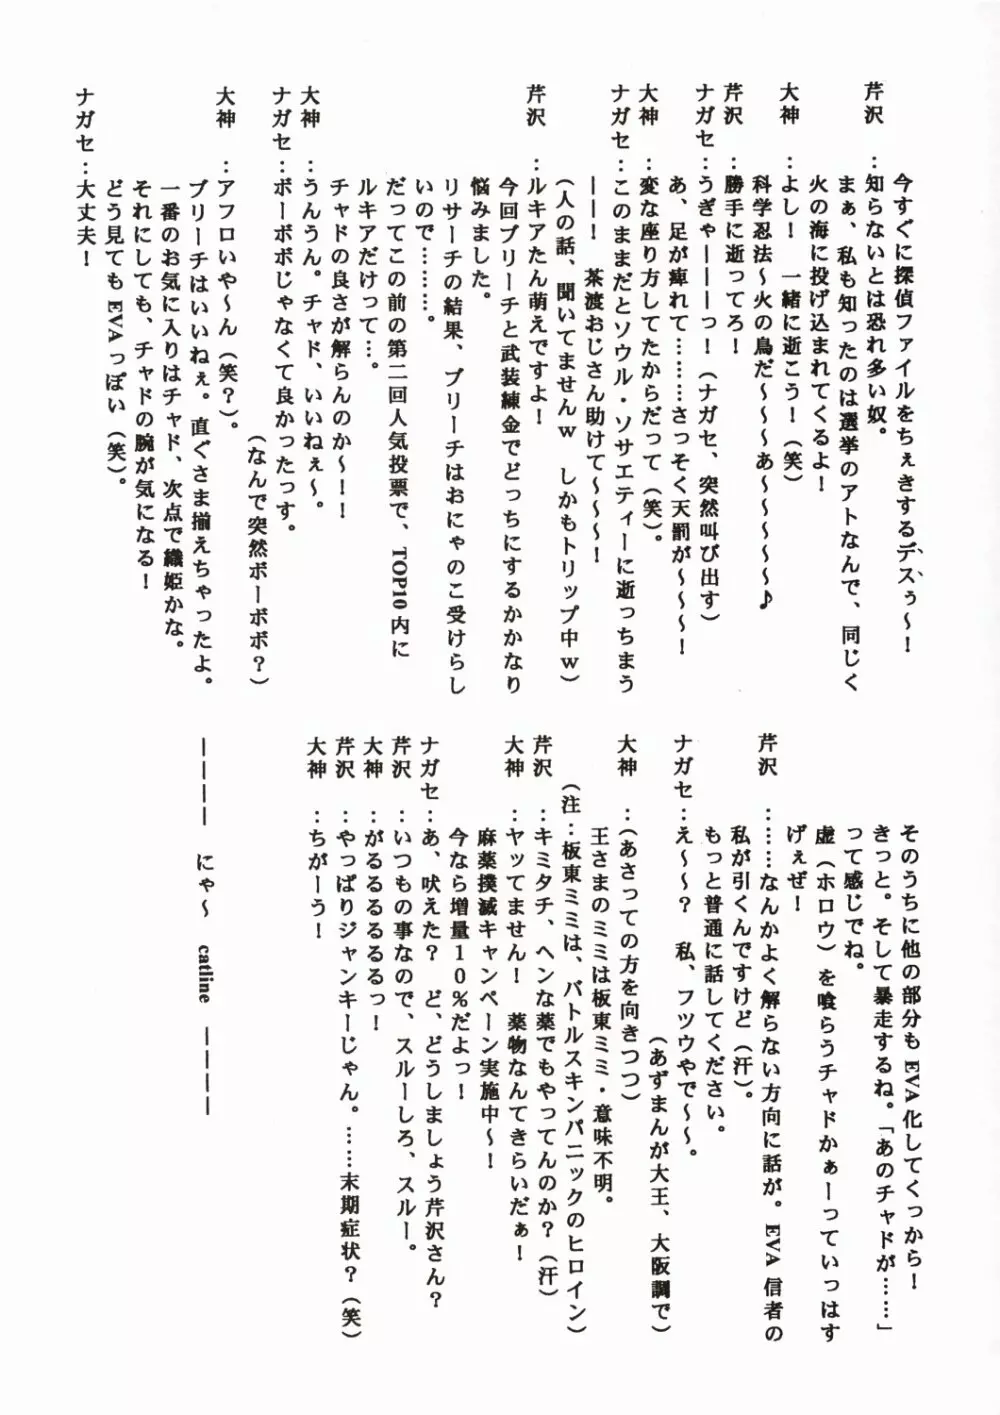 今すぐに探偵ファイルをちぇきするデスぅ～！
芹沢　：知らないとは恐れ多い奴。
まぁ、私も知ったのは選挙のアトなんで、同じく
火の海に投げ込まれてくるよ！
大神　：よし！　一緒に逝こう！（笑）
科学忍法～火の鳥だ～～～あ～～～～～♪
芹沢　：勝手に逝ってろ！
ナガセ：うぎゃーーーっ！（ナガセ、突然叫び出す）
あ、足が痺れて………さっそく天罰が～～～！
大神　：変な座り方してたからだって（笑）。
ナガセ：このままだとソウル・ソサエティーに逝っちまう
ーーー！　茶渡おじさん助けて～～～！
（人の話、聞いてませんｗ　しかもトリップ中ｗ）
芹沢　：ルキアたん萌えですよ！
今回ブリーチと武装練金でどっちにするかかなり
悩みました。
リサーチの結果、ブリーチはおにゃのこ受けらし
いので………。
だってこの前の第二回人気投票で、TOP10内に
ルキアだけって…。
チャドの良さが解らんのか～！！
大神　：うんうん。チャド、いいねぇ～。
ナガセ：ボーボボじゃなくて良かったっす。
（なんで突然ボーボボ？）
大神　：アフロいや～ん（笑？）。
ブリーチはいいねぇ。直ぐさま揃えちゃったよ。
一番のお気に入りはチャド、次点で織姫かな。
それにしても、チャドの腕が気になる！
どう見てもEVAっぽい（笑）。
ナガセ：大丈夫！
そのうちに他の部分もEVA化してくっから！
きっと。そして暴走するね。「あのチャドが……」
って感じでね。
虚（ホロウ）を喰らうチャドかぁーっていっはす
げぇぜ！
芹沢　：……なんかよく解らない方向に話が。EVA信者の
私が引くんですけど（汗）。
もっと普通に話してください。
ナガセ：え～～？　私、フツウやで～～。
（あずまんが大王、大阪調で）
大神　：（あさっての方を向きつつ）
王さまのミミは板東ミミ・意味不明。
（注：板東ミミは、バトルスキンパニックのヒロイン）
芹沢　：キミタチ、ヘンな薬でもやってんのか？（汗）
大神　：ヤッてません！　薬物なんてきらいだぁ！
麻薬撲滅キャンペーン実施中～！
今なら増量１０％だよっ！
ナガセ：あ、吠えた？　ど、どうしましょう芹沢さん？
芹沢　：いつもの事なので、スルーしろ、スルー。
大神　：がるるるるるっ！
芹沢　：やっぱりジャンキーじゃん。……末期症状？（笑）
大神　：ちがーう！
ーーーー　にゃ～　catline　ーーーー